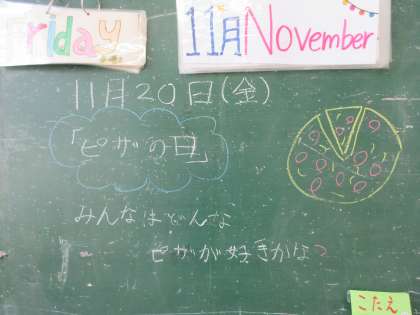 Friday!
11月 November
11月20日(金)
「ピザの日」
みんなはどんな
ピザが好きかな?
こたえ